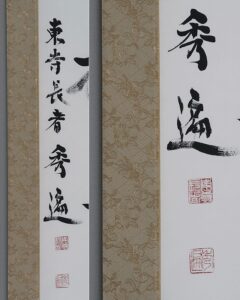 東寺長者秀遍
秀遍